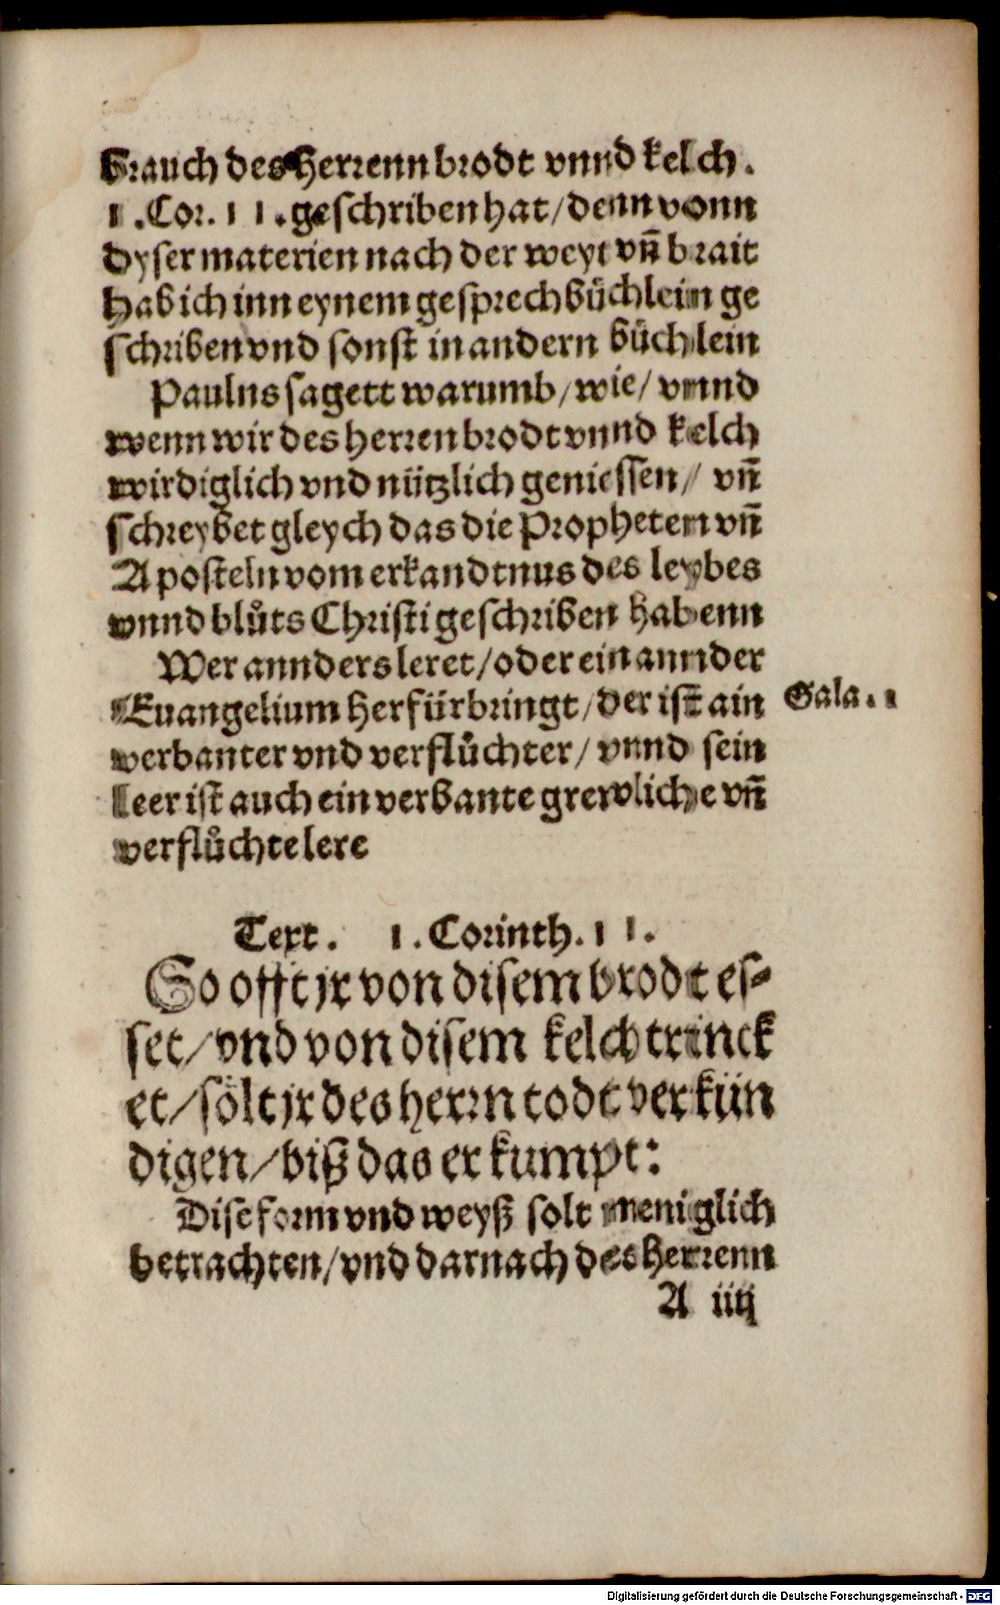 brauch des Herrenn brodt vnnd kelch.
1.Cor.11.geschriben hat/denn vonn
dyser materien nach der weyt vñ brait
hab ich inn eynem gesprech büchlein ge
schriben vnd sonst in andern büchlein
Paulus sagett warumb/wie/vnnd
wenn wir des herren brodt vnnd kelch
wirdiglich vnd nützlich geniessen/ vñ
schreybet gleych das die Propheten vñ
Aposteln vom erkandtnus des leybes
vnnd blůts Christi geschriben habenn
Wer annders leret/oder ein annder
Euangelium herfürbringt/der ist ain
Gala.1
verbanter vnd verflůchter/vnnd sein
leer ist auch ein verbante grewliche vñ
verflůchte lere
Text. 1.Corinth.11.
So offt jr von disem brodt es-
set/vnd von disem kelch trinck
et/sölt jr des herrn todt verkün
digen/biß das er kumpt:
Dise form vnd weyß solt meniglich
betrachten/vnd darnach des Herrenn
A iiij
Digitalisierung gefördert durch die Deutsche Forschungsgemeinschaft - DFG